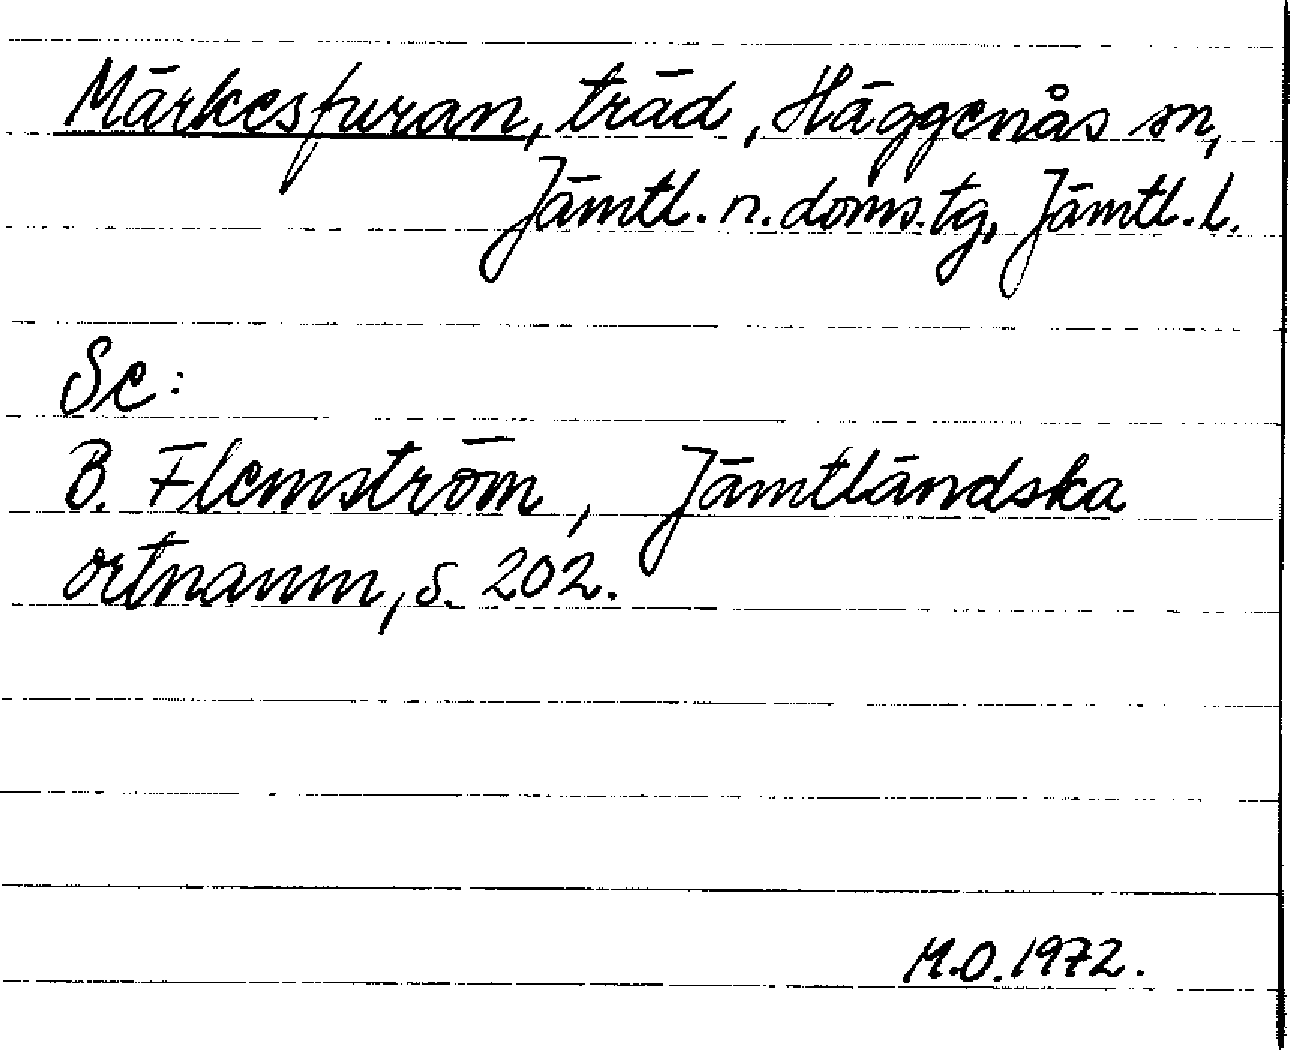 Märkesfuran, träd, Häggenås sn,
Jämtl. n. doms.tg, Jämtl. l.
Se:
B. Flemström, Jämtländska
ortnamn, s. 202.
M.O. 1972.